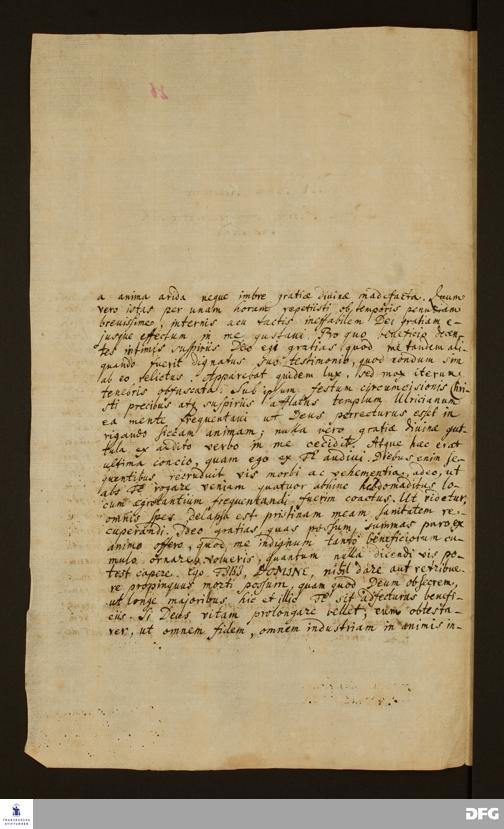 26
a anima arida neque imbre gratiæ divinæ madefacta. Quum
vero istas per unam horam repetiisti ob temporis penuriam
brevissime, internis acu tactis ineffabilem Dei gratiam e-
jusque effectum in me gustavi. Pro quo beneficio
tes intimis suspiriis Deo ego gratias quod me tandem ali-
quando fuerit dignatus suo testimonio, quod nondum sim
ab eo relictus. Apparebat quidem lux, sed mox iterum
tenebris obfuscata. Sub ipsum festum circumcisionis Chri-
sti precibus atque suspiriis afflatus templum Ulricianum
ea mente frequentavi ut Deus esset in
rigando siccam animam; nulla vero gratiæ divinæ gut-
tula ex audito verbo in me cecidit. Atque hæc erat
ultima concio, quam ego ex Te audivi. Diebus enim se-
quentibus recruduit vis morbi ac vehementia, adeo, ut
abs Te rogare veniam quatuor abhinc hebdomadibus lo-
cum ægrotantium frequentandi fuerim coactus. Ut videtur,
omnis spes delapsa est pristinam meam sanitatem re-
cuperandi. Ideo gratias, quas possum, summas puro ex
animo offero, quod me indignum tanto beneficiorum cu-
mulo ornare volueris, quantum nulla dicendi vis po-
test capere. Ego TIBI, DOMINE, nihil dare aut retribue-
re propinquus morti possum, quam quod Deum obsecrem,
ut longe majoribus hic et illic Te sit adfecturus benefi-
ciis. Si Deus vitam prolongare vellet, eum obtesta-
rer, ut omnem fidem, omnem industriam in animis in-
FRANCKESCHE
STIFTUNGEN
DFG